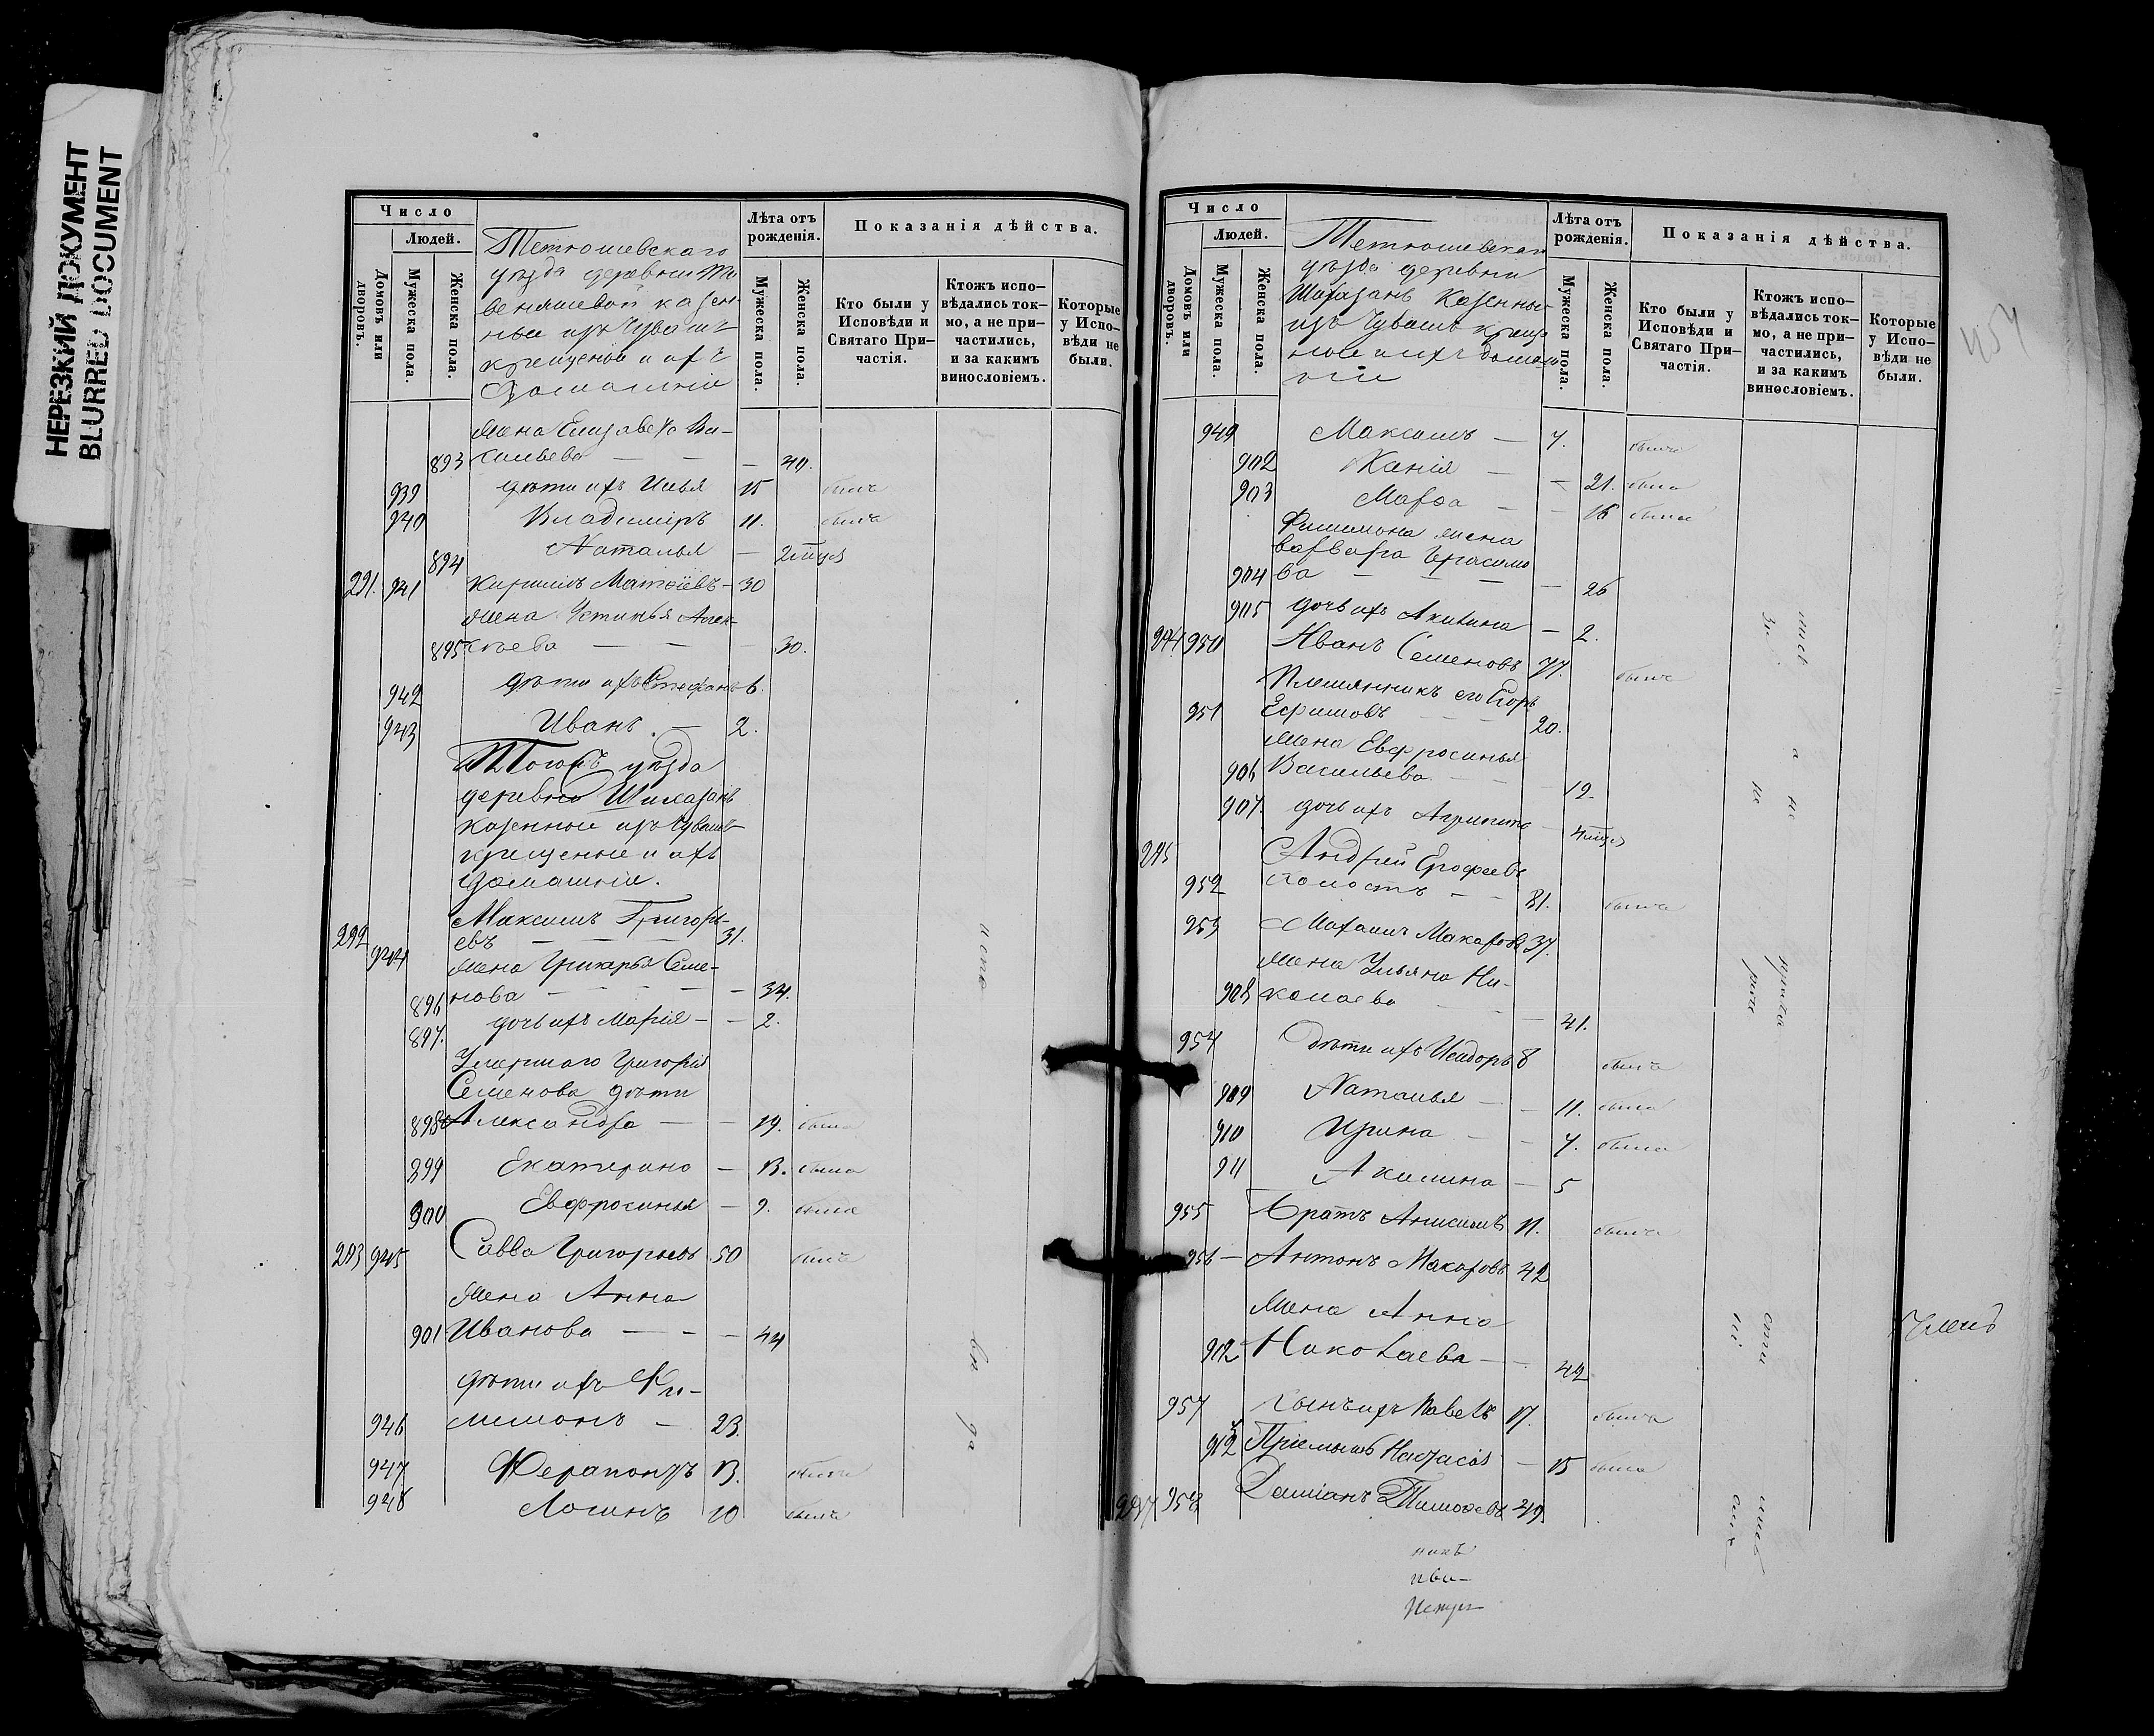 НЕРЕЗКИЙ ДОКУМЕНТ
BLURRED DOCUMENT
Число
Людей.
Домовъ или дворовъ.
Мужеска пола.
Женска пола.
Тетюшевскаго
уѣзда деревни
казен-
ные изъ Чувашъ
крещеные и ихъ
домашніе
Лѣта отъ рожденія.
Мужеска пола.
Женска пола.
Показанія дѣйства.
Кто были у Исповѣди и Святаго При-частія.
Ктожъ испо-вѣдались ток-мо, а не при-частились, и за какимъ винословіемъ.
Которые у Испо-вѣди не были.
жена Елизавета Ва-
893 сильева — — — 40.
939 дѣти ихъ Илья 15 былъ
940 Владиміръ 11. былъ
894 Наталья — 2 мѣця
291. 941 Кириллъ Матѳіевъ — 30
жена Устинья Алек-
895 сѣева — — — 30.
942 дѣти ихъ Стефанъ 6.
943 Иванъ — 2.
Тогожъ уѣзда
деревни Шихазанъ
казенные изъ Чувашъ
крещеные и ихъ
домашніе.
Максимъ Григорь-
292 944 евъ — — — 31.
жена Гликерья Семе-
896 нова — — — — 34.
897. дочь ихъ Марія — — 2.
Умершаго Григорія
Семенова дѣти
898 Александра — — 19. была
899 Екатерина — 13. была
900 Евфросинья — 9. была
293 945 Савва Григорьевъ 50 былъ
жена Анна
901 Ивановa — — — 44
дѣти ихъ Фи-
946 лимонъ — 23.
947 Ферапонтъ 13. былъ
948 Логинъ 10 былъ
испо
вѣ
да
Число
Людей.
Домовъ или дворовъ.
Мужеска пола.
Женска пола.
Тетюшевскаго
уѣзда деревни
Шихазанъ казенные
изъ Чувашъ креще
ные и ихъ домаш
ніе
Лѣта отъ рожденія.
Мужеска пола.
Женска пола.
Показанія дѣйства.
Кто были у Исповѣди и Святаго При-частія.
Ктожъ испо-вѣдались ток-мо, а не при-частились, и за какимъ винословіемъ.
Которые у Испо-вѣди не были.
949 Максимъ — 7. былъ
902 Ксенія — — 21. была
903 Марфа — — 16 была
Филимона жена
Варвара Герасимо
904 ва — — — — 26
905 дочь ихъ Акилина — 2.
294 950 Иванъ Семеновъ 77. былъ
Племянникъ его Егоръ
951 Ефимовъ 20.
жена Евфросинья
906 Васильева 19.
907. дочь ихъ Агрипина 4 мѣця
295
Андрей Ерофеевъ
952 холостъ — — 81. былъ
953 Макаровъ 37.
жена Ульяна Ни-
908 колаева — 41.
954 Дѣти ихъ Исидоръ 8 былъ
909 Наталья — — 11. была
910 Ирина — — 7. была
911 Акилина — 5
955 Братъ Анисимъ 11. былъ
956 — Антонъ Макаровъ 42
жена Анна
912 Николаева — — 42
957 Сынъ ихъ Павелъ 17. былъ
Пріемышъ Настасія — 15 была
297 958 Даміанъ Тимоѳеевъ 49.
лись
а
не
прича
сти
лись